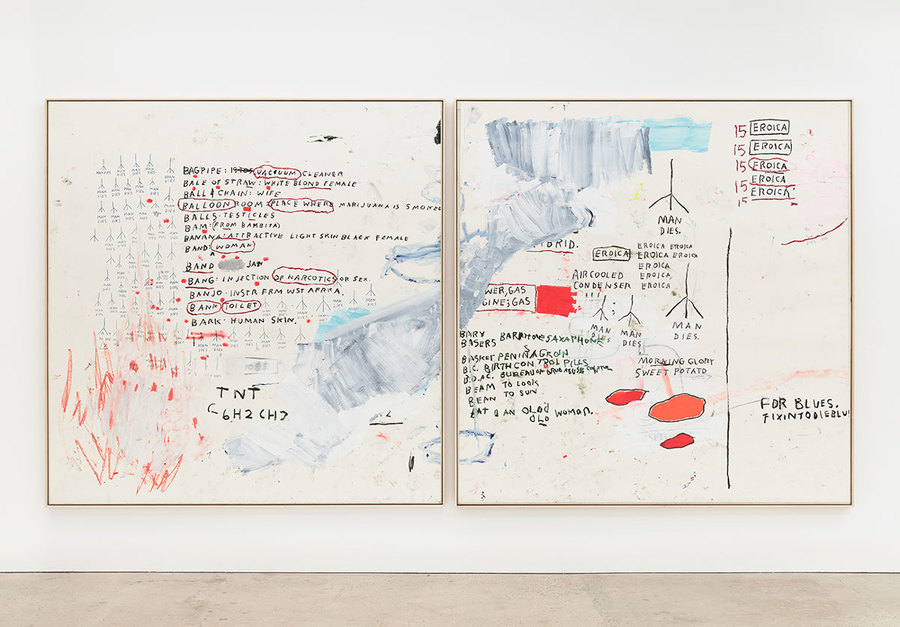 BAGPIPE: VACUUM CLEANER
BALE OF STRAW: WHITE BLOND FEMALE
BALL & CHAIN: WIFE
BALLOON ROOM: PLACE WHERE MARIJUANA IS SMOKED
BALLS: TESTICLES
BAM: (FROM BAMBITA)
BANANA: ATTRACTIVE LIGHT SKIN BLACK FEMALE
BAND: WOMAN
BAND JAW
BANG: INJECTION OF NARCOTICS OR SEX.
BANJO: INSTR FRM WST AFRKA.
BANK: TOILET
BARK: HUMAN SKIN.
TNT
C6H2CH3
15 EROICA
15 EROICA
15 EROICA
15 EROICA
EROICA
15
MAN
DIES.
BRID.
EROICA
EROICA EROICA
EROICA EROICA
EROICA
EROICA,
EROICA
AIRCOOLED
CONDENSER
WER, GAS
GINE; GAS
MAN
DIES
MAN
DIES.
MAN
DIES.
BARY BARITONE SAXAPHONE
BASERS
BASKET PENINAGRON
B.C. BIRTH CONTROL PILLS
B.D.A.C. BUREAU OF DRUG ABUSE
BEAM TO LOOK
BEAN TO SUN
EAT B AN OLD WOMAN.
OLD
MORNING GLORY
SWEET POTATO
FOR BLUES.
FIXINTODIEBLU